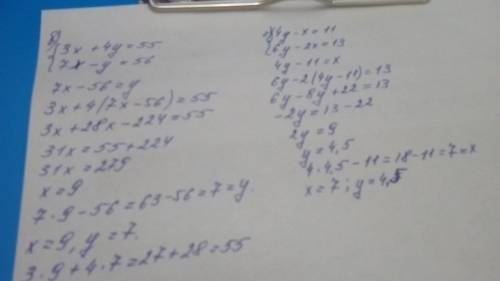 б)
{3x + 4y = 55
{7x - y = 56
7x - 56 = y
3x + 4(7x - 56) = 55
3x + 28x - 224 = 55
31x = 55 + 224
31x = 279
x = 9
7·9 - 56 = 63 - 56 = 7 = y.
x = 9, y = 7.
3·9 + 4·7 = 27 + 28 = 55
{4y - x = 11
{6y - 2x = 13
4y - 11 = x
6y - 2(4y - 11) = 13
6y - 8y + 22 = 13
-2y = 13 - 22
2y = 9
y = 4,5
4·4,5 - 11 = 18 - 11 = 7 = x
x = 7; y = 4,5